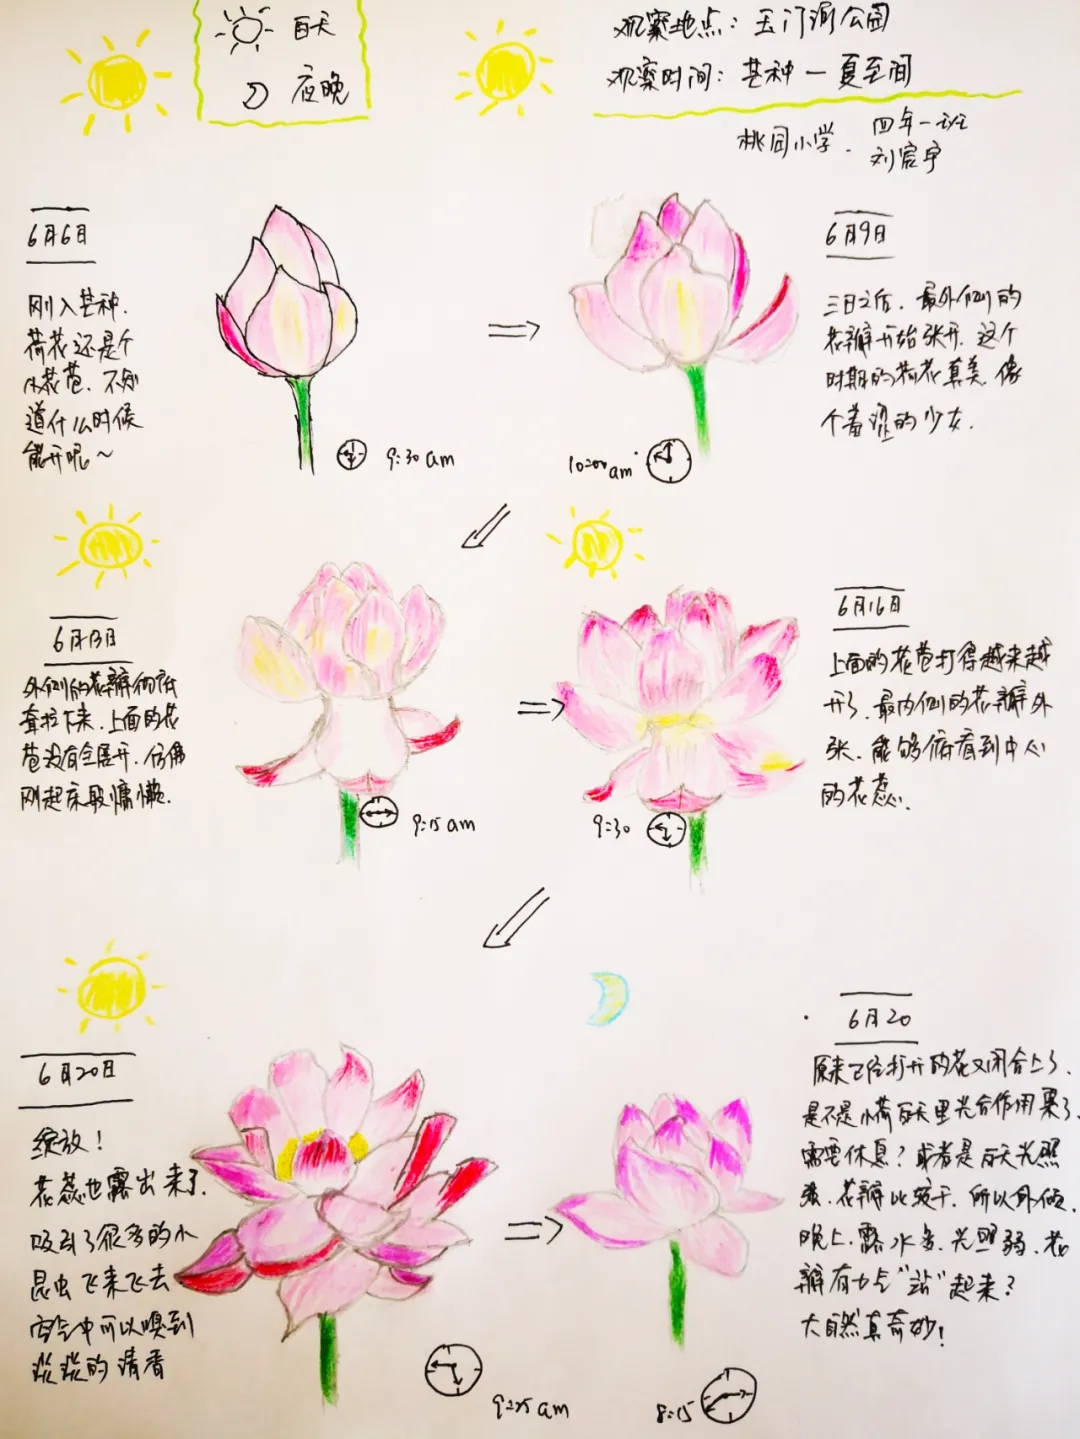 白天
夜晚
观察地点：玉门河公园
观察时间：芒种—夏至间
桃园小学.
四年一班
刘宸宇
6月6日
刚入芒种.
荷花还是个
小花苞.不知
道什么时候
能开呢～
9:30 am
6月9日
三日之后.最外侧的
花瓣开始张开.这个
时期的荷花真美.像
个羞涩的少女.
10:00 am
6月13日
外侧的花瓣彻底
耷拉下来.上面的花
苞没有全展开.仿佛
刚起床般慵懒.
9:15 am
6月16日
上面的花苞打得越来越
开了.最内侧的花瓣外
张.能够俯看到中心
的花蕊.
9:30
6月20日
绽放！
花蕊也露出来了.
吸引了很多的小
昆虫飞来飞去
空气中可以嗅到
淡淡的清香
9:25 am
6月20
原来已经打开的花又闭合上了.
是不是小荷白天里光合作用累了.
需要休息？或者是白天光照
强.花瓣比较干.所以外倾.
晚上.露水多.光照弱.花
瓣有力气"站"起来？
大自然真奇妙！
8:15